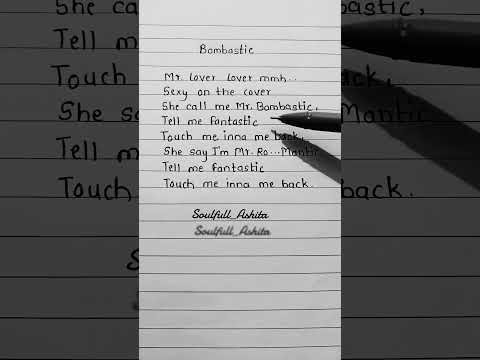 Bombastic
Mr. lover lover mmh...
Sexy on the cover
She call me Mr. Bombastic,
Tell me fantastic
Touch me inna me back,
She say I'm Mr. Ro...Mantic
Tell me fantastic
Touch me inna me back.
Soulfull_Ashita
Soulfull_Ashita